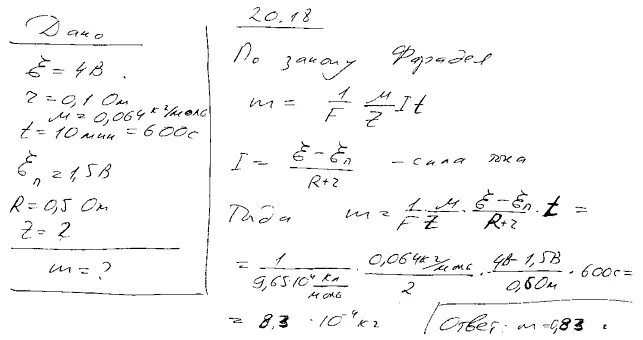 Дано
ℰ = 4 В.
r = 0,1 Ом
M = 0,064 кг/моль
t = 10 мин = 600 с
ℰп = 1,5 В
R = 0,5 Ом
Z = 2
m = ?
20.18
По закону Фарадея
m = 1/F M/Z I t
I = (ℰ - ℰп)/(R+r) - сила тока
Тогда m = 1/F M/Z · (ℰ - ℰп)/(R+r) · t =
= 1/(9,65·10⁴ Кл/моль) · 0,064 кг/моль/2 · (4В - 1,5В)/(0,6 Ом) · 600с =
= 8,3 · 10⁻⁴ кг
Ответ: m = 0,83 г